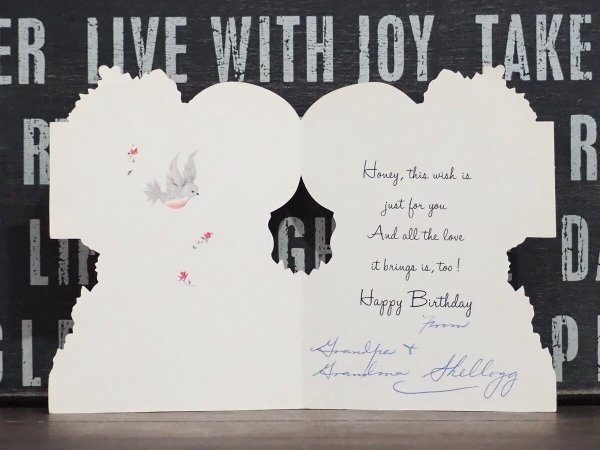 ER LIVE WITH JOY TAKE
Honey, this wish is
just for you
And all the love
it brings is, too!
Happy Birthday
From
Grandpa +
Grandma Shellogg